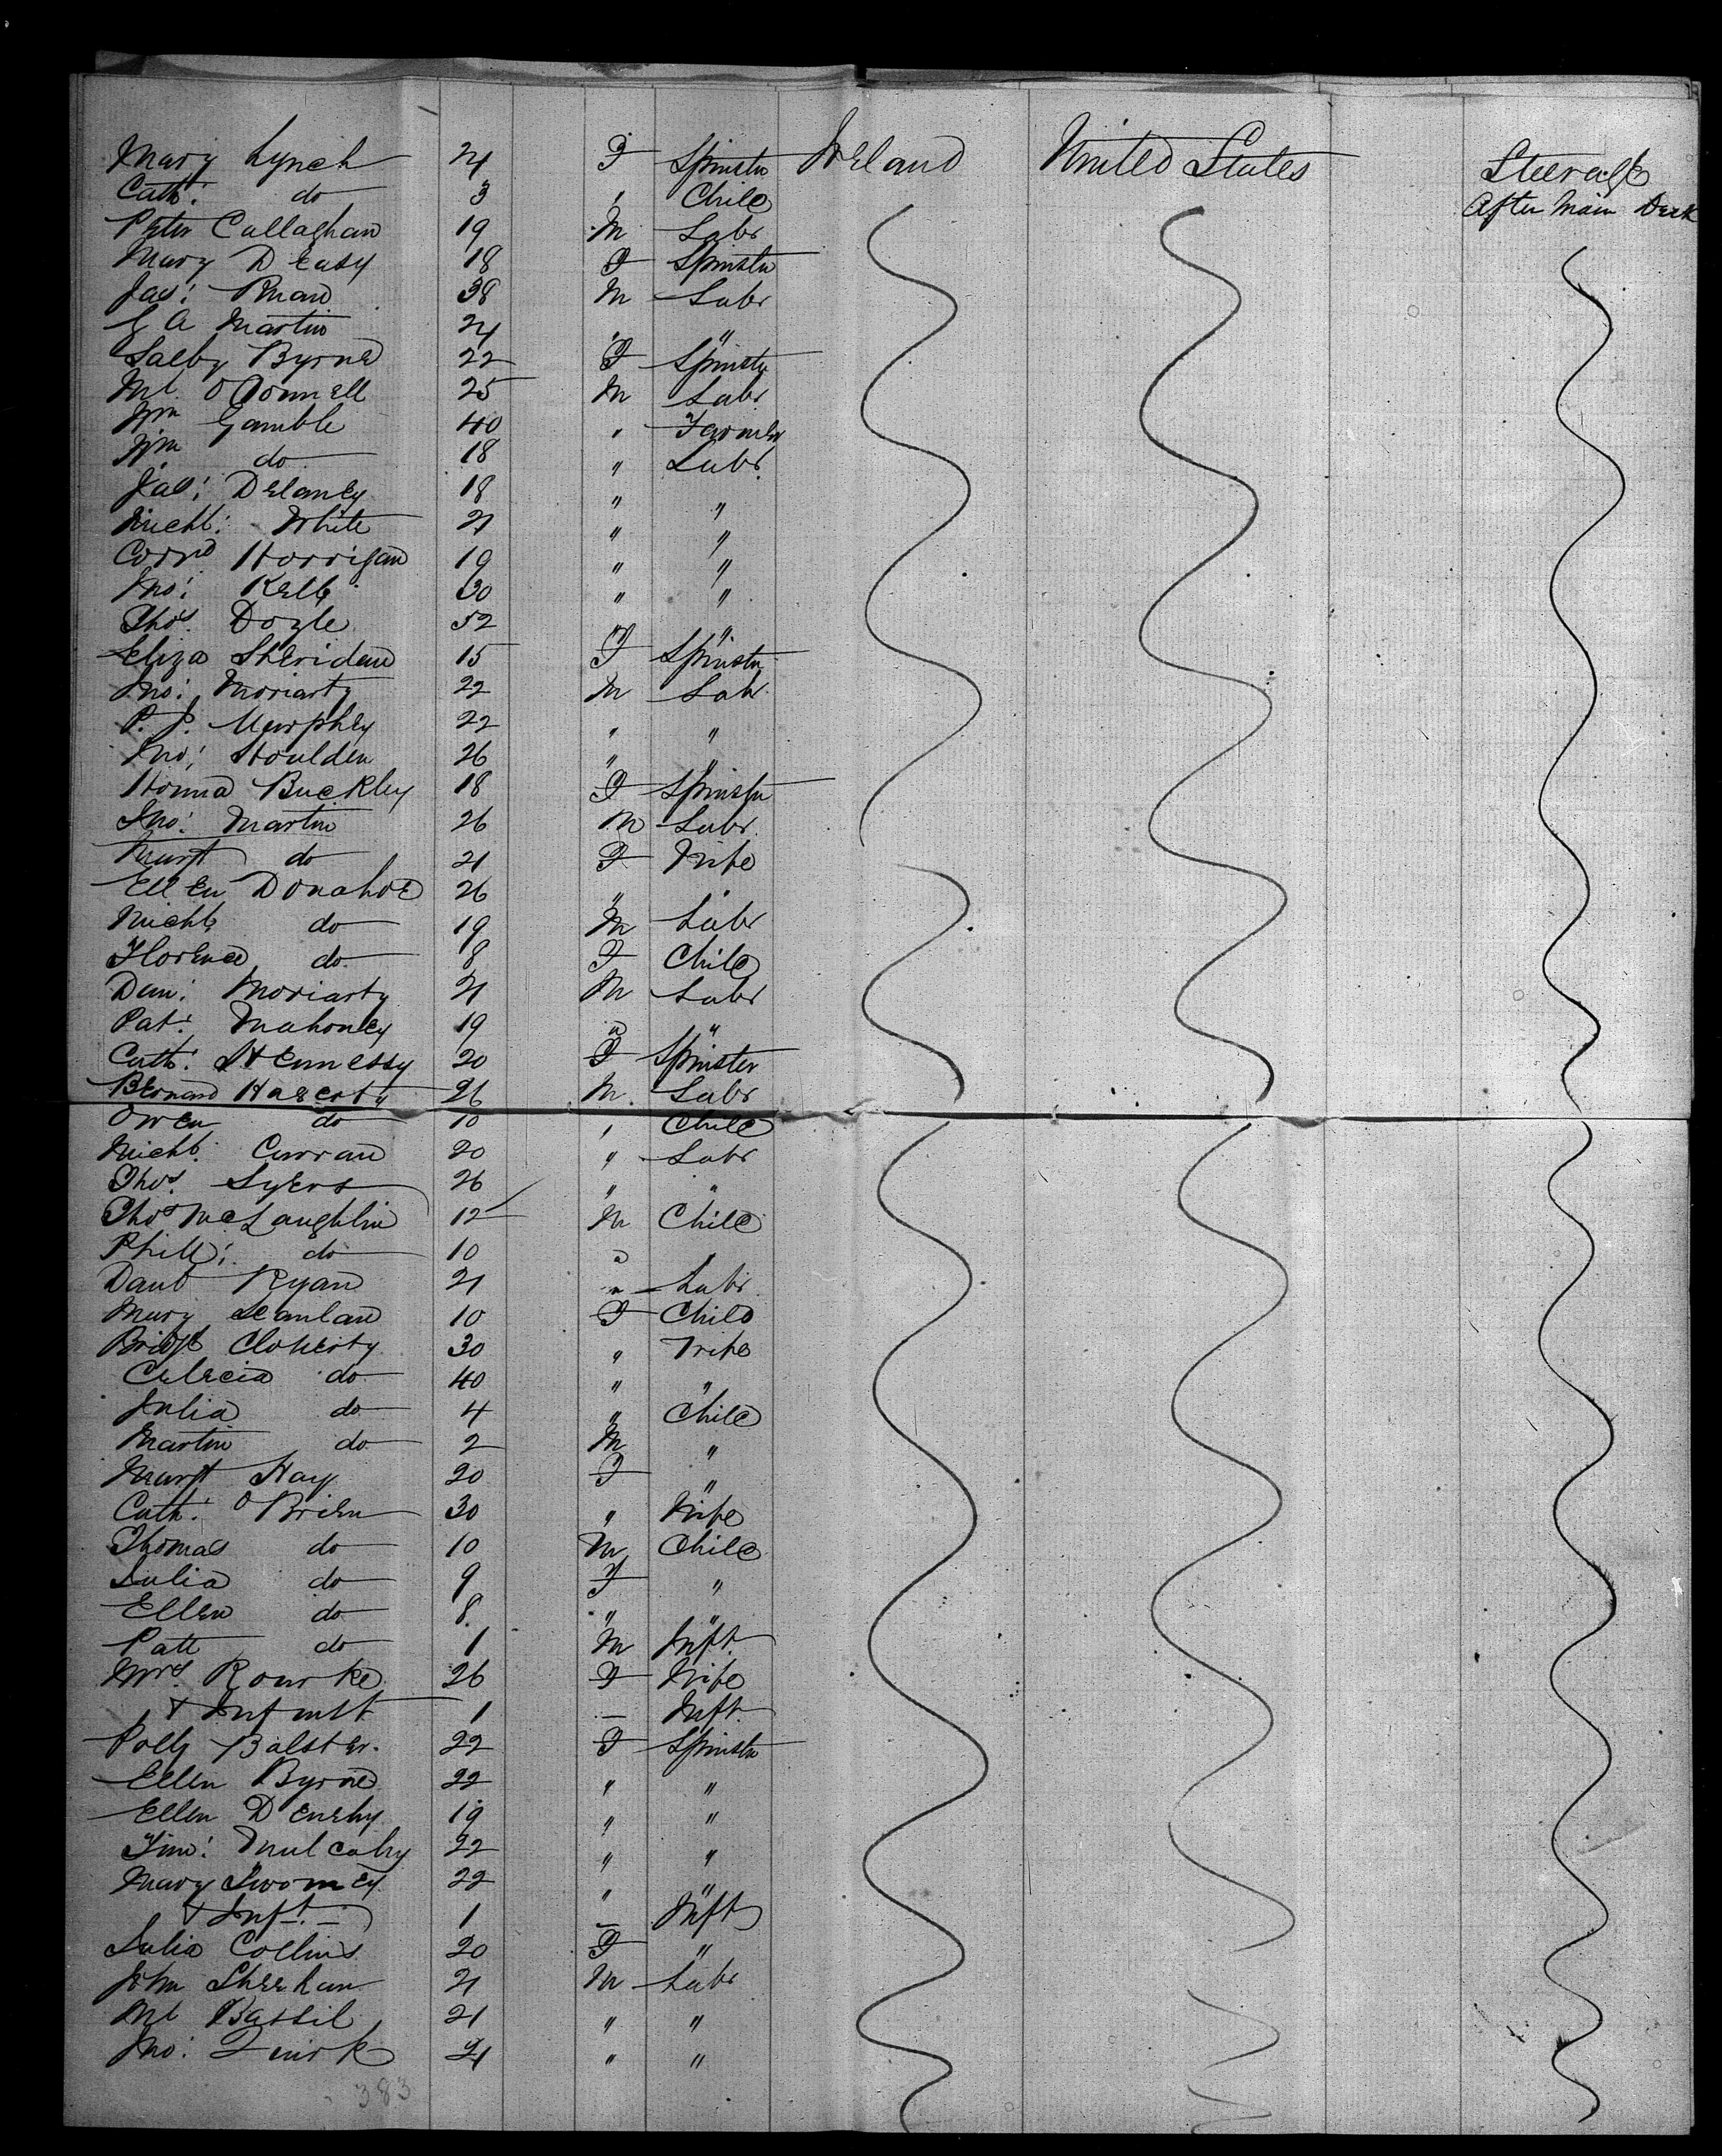 Mary Lynch 24 F Spinstr Ireland United States Steerage
Cath: do 3 " Child After Main Deck
Peter Callaghan 19 M Labr
Mary Deasy 18 F Spinstr
Jas: 38 M Labr
G A Martin 24 " "
Byrne 22 F Spinstr
Ml. O'Donnell 25 M Labr
Wm Gamble 40 " Farmer
Wm do 18 " Labr
Jas: Delaney 18 " "
Michl: White 21 " "
Cornd Horrigan 19 " "
Jno: Kelly 30 " "
Thos. Doyle 52 " "
Eliza Sheridan 15 F Spinstr
Jno: Moriarty 22 M Labr
P. J. Murphey 22 " "
Jno: Houlden 26 " "
Honna Buckley 18 F Spinstr
Jno: Martin 26 M Labr
Margt do 21 F Wife
Ellen Donahoe 26 " "
Michl do 19 M Labr
Florence do 8 F Child
Dan: Moriarty 21 M Labr
Pat: Mahoney 19 " "
Cath: Hennessy 20 F Spinster
Bernard Hagerty 26 M Labr
Owen do 10 " Child
Michl. Curran 20 " Labr
Thos. Syers 26 " "
Thos McLaughlin 12 M Child
Phill: do 10 "
Danl Ryan 21 " Labr
Mary Scanlan 10 F Child
Bridgt Cloherty 30 " Wife
Celecia do 40 " "
Julia do 4 " Child
Martin do 2 M "
Margt Hay 20 F "
Cath: O'Brien 30 " Wife
Thomas do 10 M Child
Julia do 9 F "
Ellen do 8 " "
Patt do 1 M Inft.
Mrs. Rourke 26 F Wife
+ Infant 1 — Inft.
Polly Balster. 22 F Spinstr
Ellen Byrne 22 " "
Ellen Denehy 19 " "
Tim: Mulcahy 22 " "
Mary Twomey 22 " "
+ Inft. 1 — Inft
Julia Collins 20 F "
John Sheehan 21 M Labr
Ml Bassil 21 " "
Jno: Quirk 21 " "
383